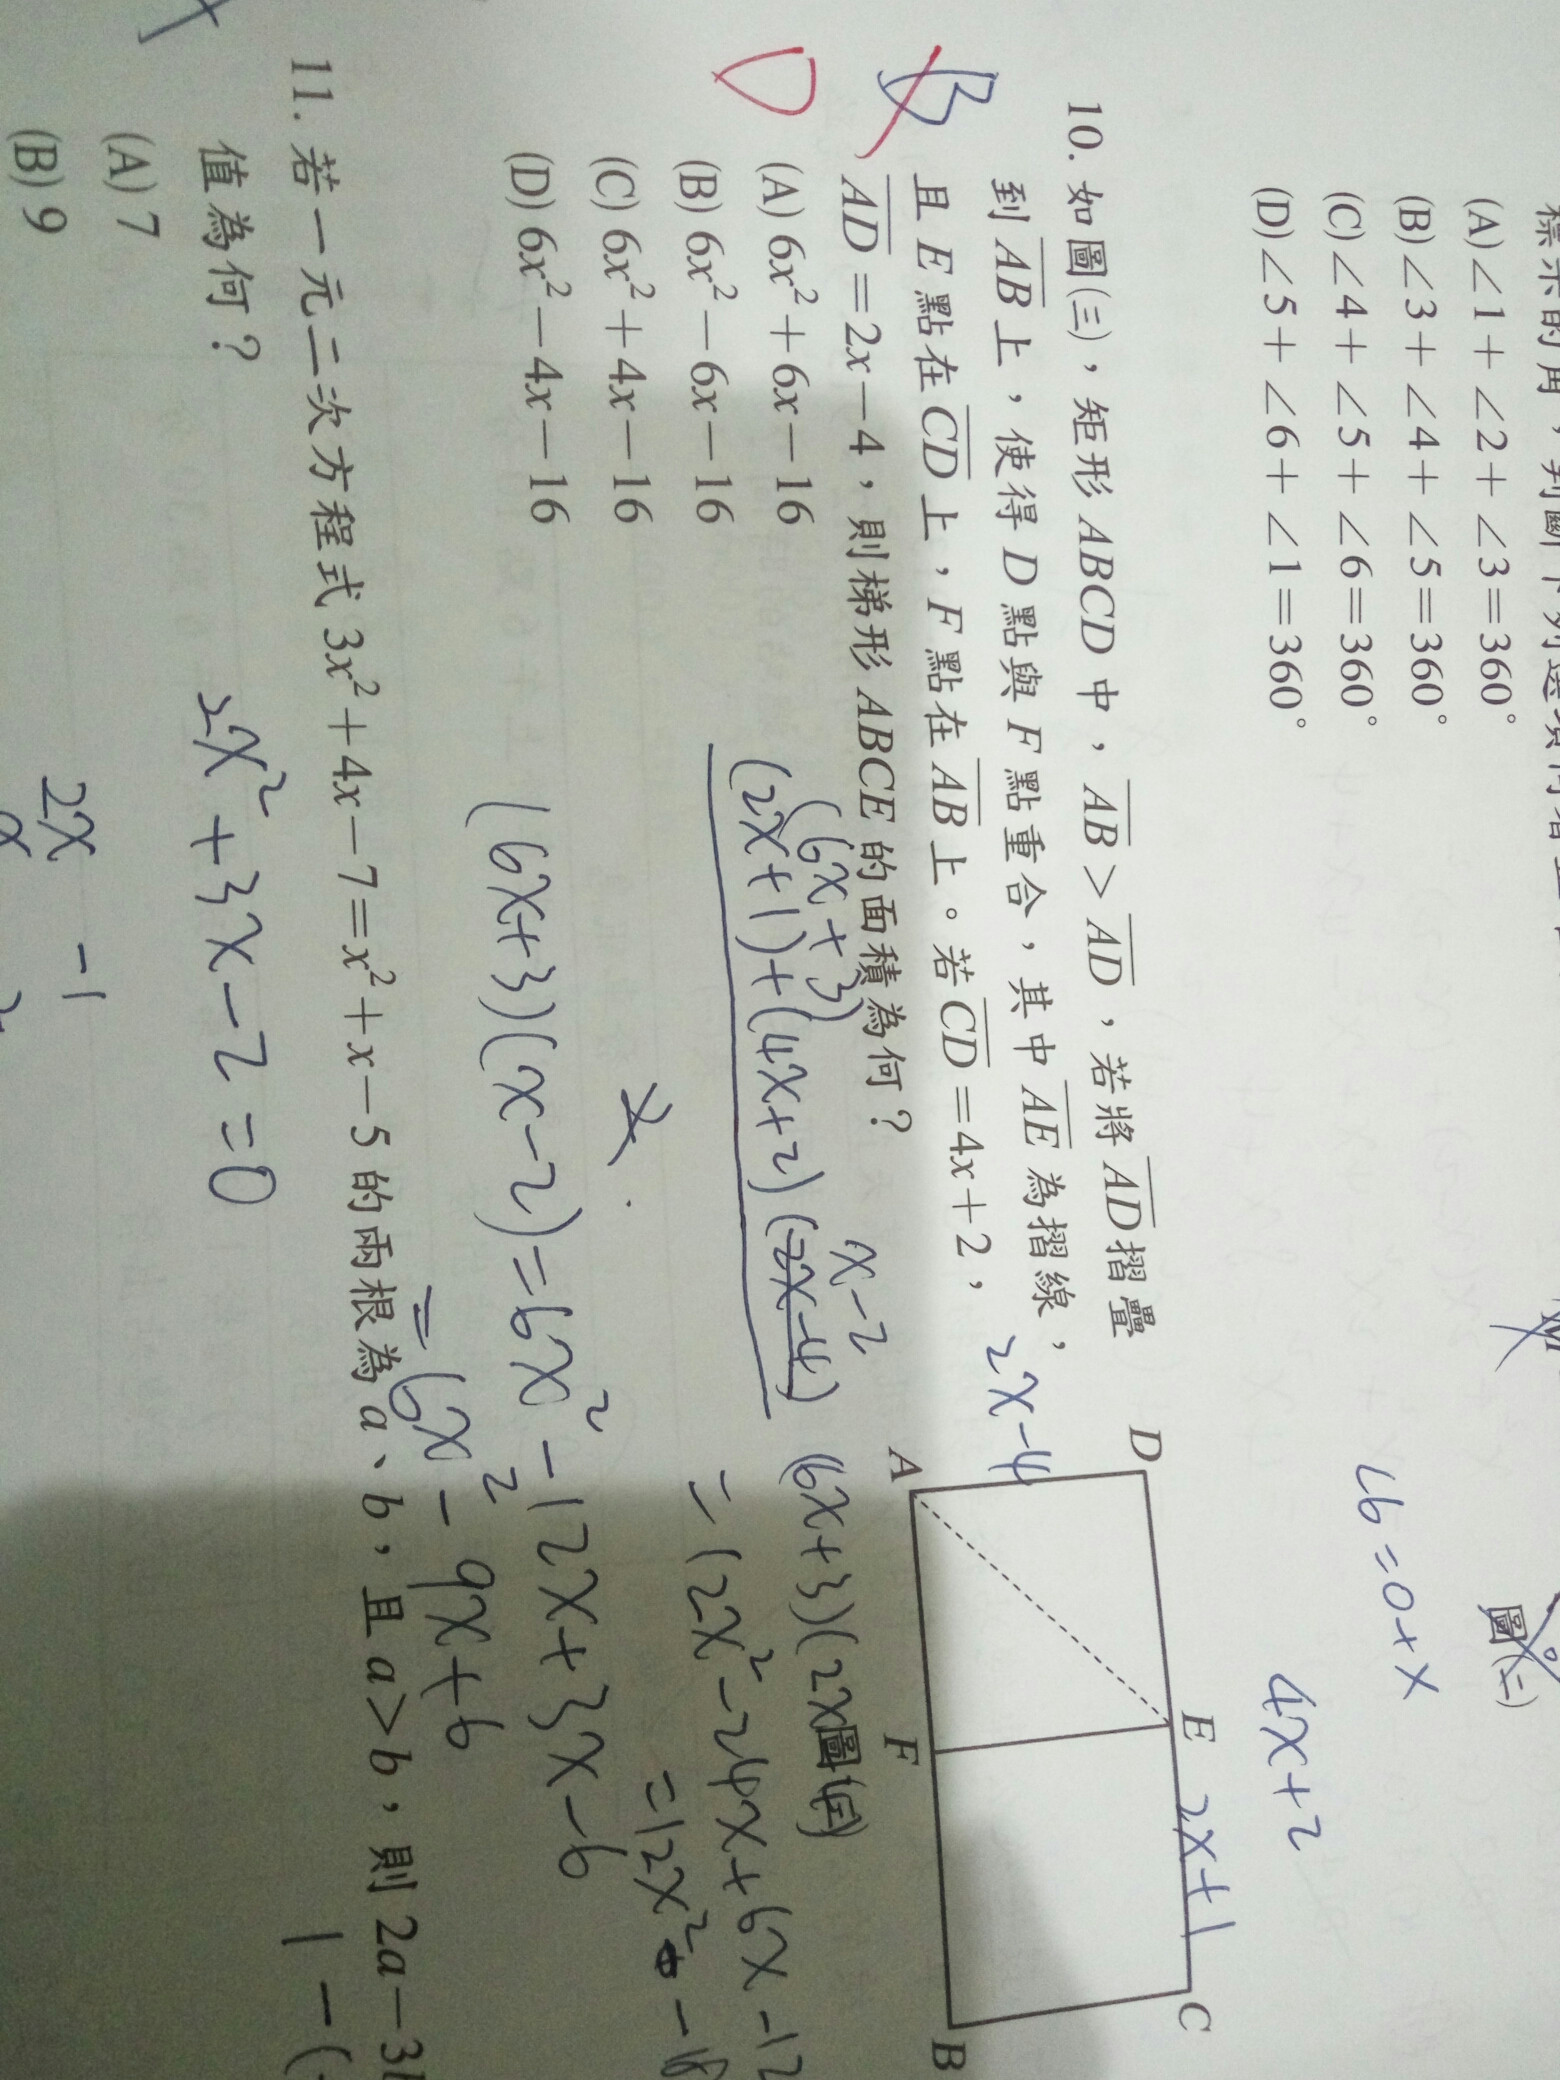 (A)∠1+∠2+∠3=360°
(B)∠3+∠4+∠5=360°
(C)∠4+∠5+∠6=360°
(D)∠5+∠6+∠1=360°
圖(二)
26=0+x
10. 如圖(三),矩形ABCD中,AB>AD,若將AD摺疊
到AB上,使得D點與F點重合,其中AE為摺線,
且E點在CD上,F點在AB上。若CD=4x+2,
AD=2x-4,則梯形ABCE的面積為何?
B
D
(A) 6x²+6x-16
(B) 6x²-6x-16
(C) 6x²+4x-16
(D) 6x²-4x-16
4x+2
D E 2x+1 C
2x-4
A F B
(6x+3) x-2
(2x+1)+(4x+2)(2x-4)
2
(6x+3)(x-2)=6x²-12x+3x-6
=6x²-9x+6
(6x+3)(2x
=12x²-24x+6x-12
=12x²
11. 若一元二次方程式3x²+4x-7=x²+x-5的兩根為a、b,且a>b,則2a-3
值為何?
(A) 7
(B) 9
2x²+3x-2=0
2x -1
x 2
1-(